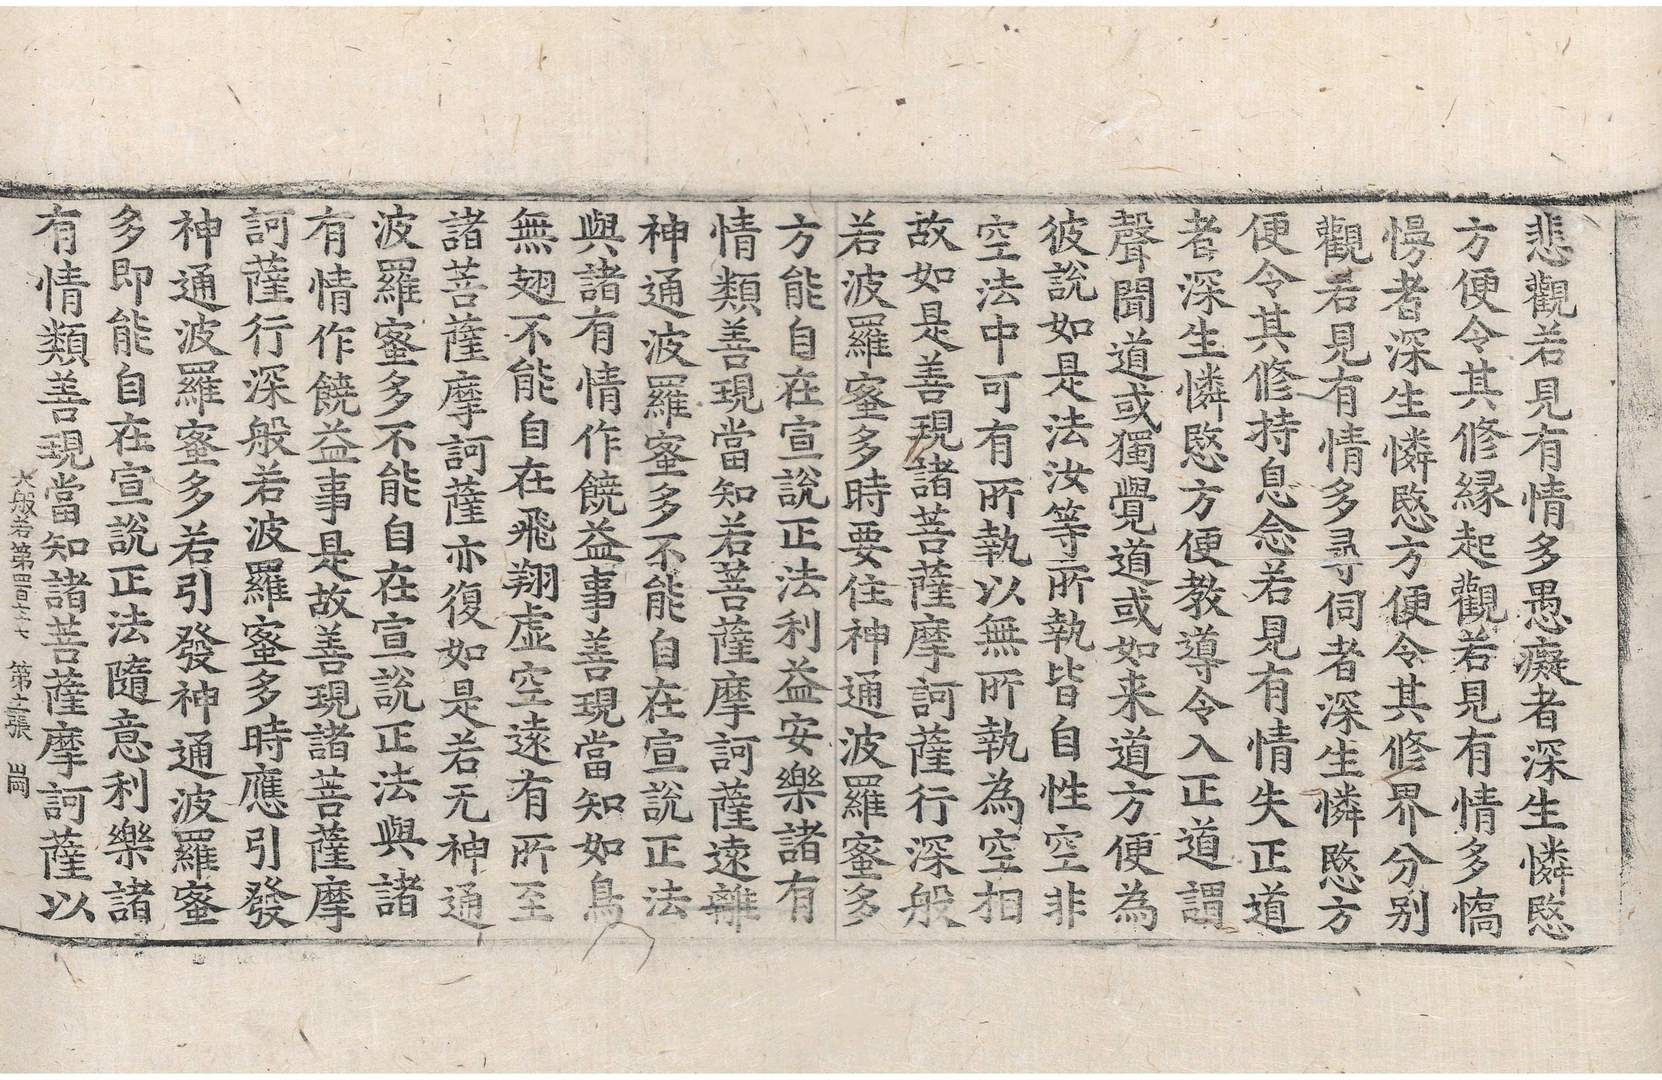 悲觀若見有情多愚癡者深生憐愍
方便令其修緣起觀若見有情多憍
慢者深生憐愍方便令其修界分別
觀若見有情多尋伺者深生憐愍方
便令其修持息念若見有情失正道
者深生憐愍方便教導令入正道謂
聲聞道或獨覺道或如来道方便為
彼說如是法汝等所執皆自性空非
空法中可有所執以無所執為空相
故如是善現諸菩薩摩訶薩行深般
若波羅蜜多時要住神通波羅蜜多
方能自在宣說正法利益安樂諸有
情類善現當知若菩薩摩訶薩遠離
神通波羅蜜多不能自在宣說正法
與諸有情作饒益事善現當知如鳥
無翅不能自在飛翔虛空遠有所至
諸菩薩摩訶薩亦復如是若无神通
波羅蜜多不能自在宣說正法與諸
有情作饒益事是故善現諸菩薩摩
訶薩行深般若波羅蜜多時應引發
神通波羅蜜多若引發神通波羅蜜
多即能自在宣說正法隨意利樂諸
有情類善現當知諸菩薩摩訶薩以
大般若第四百七十七 第 張 崗